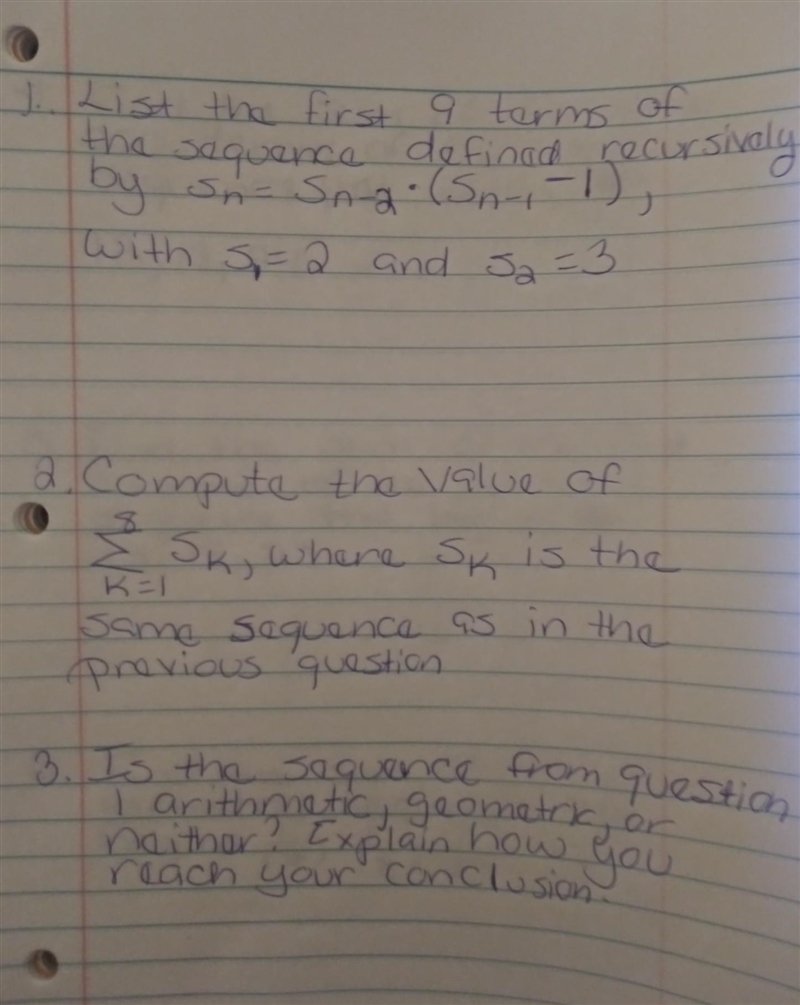 1. List the first 9 terms of
the sequence defined recursively
by Sₙ = Sₙ₋₂ · (Sₙ₋₁ - 1),
with S₁ = 2 and S₂ = 3
2. Compute the value of
8
∑ Sₖ, where Sₖ is the
K=1
same sequence as in the
previous question
3. Is the sequence from question
1 arithmetic, geometric, or
neither? Explain how you
reach your conclusion.